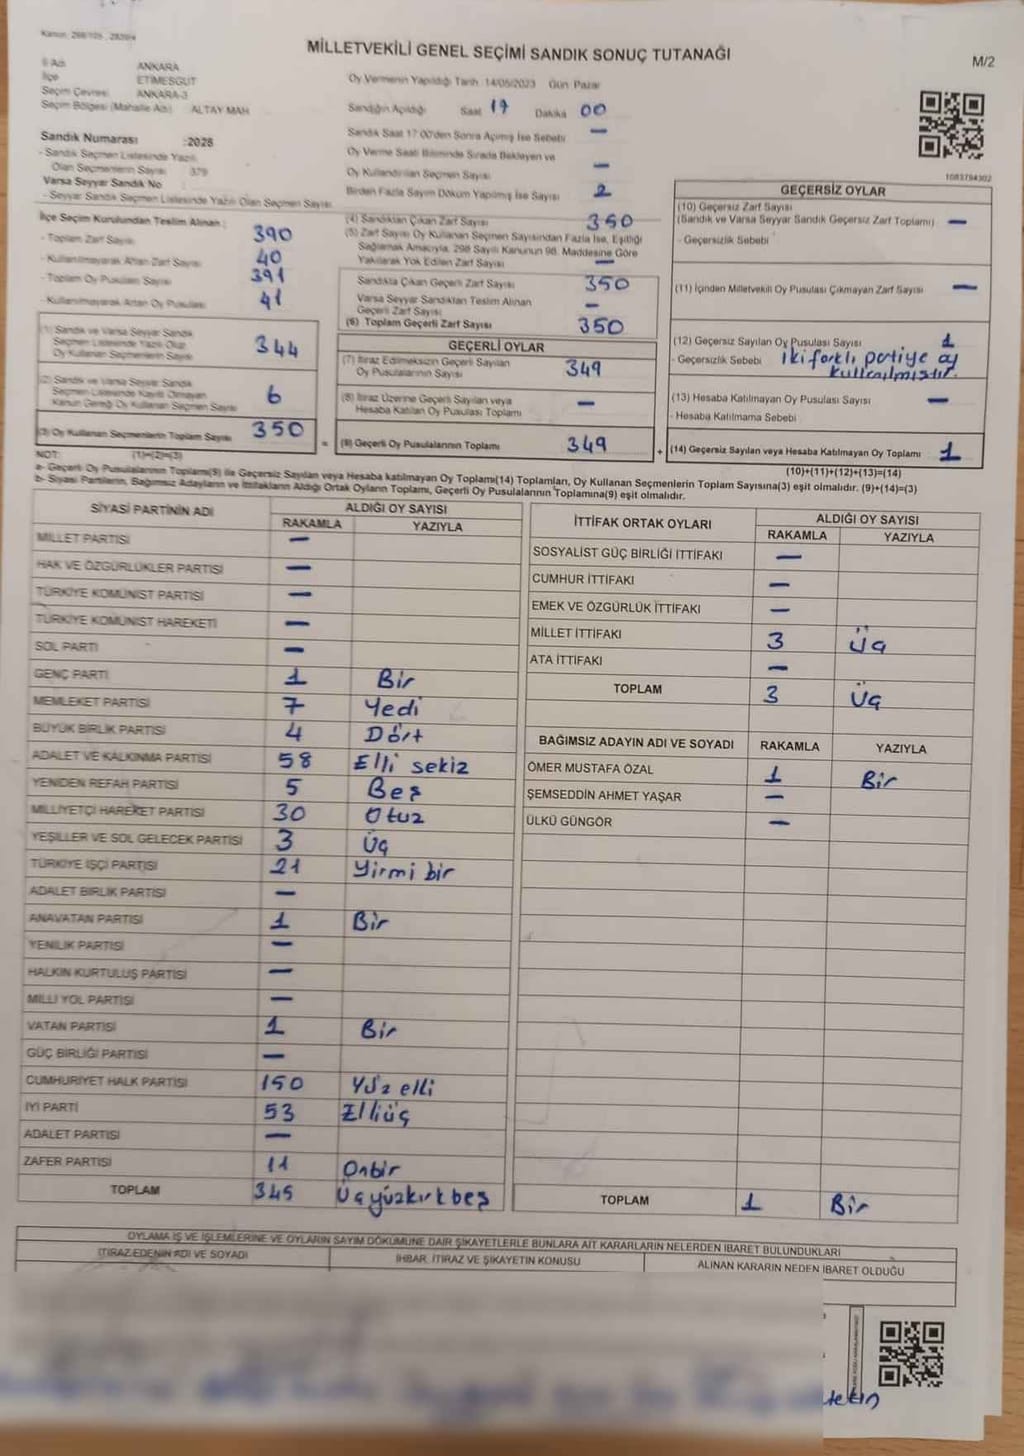 Kanun: 298/105, 2839/4
MİLLETVEKİLİ GENEL SEÇİMİ SANDIK SONUÇ TUTANAĞI
M/2
İl Adı ANKARA
İlçe ETİMESGUT
Seçim Çevresi ANKARA-3
Seçim Bölgesi (Mahalle Adı) ALTAY MAH
Oy Vermenin Yapıldığı Tarih 14/05/2023 Gün Pazar
Sandığın Açıldığı Saat 17 Dakika 00
Sandık Saat 17:00'den Sonra Açılmış İse Sebebi —
Oy Verme Saati Bitiminde Sırada Bekleyen ve
Oy Kullandırılan Seçmen Sayısı —
Birden Fazla Sayım Döküm Yapılmış İse Sayısı 2
Sandık Numarası :2028
- Sandık Seçmen Listesinde Yazılı
Olan Seçmenlerin Sayısı 379
Varsa Seyyar Sandık No
- Seyyar Sandık Seçmen Listesinde Yazılı Olan Seçmen Sayısı
1083794302
İlçe Seçim Kurulundan Teslim Alınan :
- Toplam Zarf Sayısı 390
- Kullanılmayarak Artan Zarf Sayısı 40
- Toplam Oy Pusulası Sayısı 391
- Kullanılmayarak Artan Oy Pusulası 41
(1) Sandık ve Varsa Seyyar Sandık
Seçmen Listesinde Yazılı Olup
Oy Kullanan Seçmenlerin Sayısı 344
(2) Sandık ve Varsa Seyyar Sandık
Seçmen Listesinde Kayıtlı Olmayan
Kanun Gereği Oy Kullanan Seçmen Sayısı 6
(3) Oy Kullanan Seçmenlerin Toplam Sayısı 350
(1)+(2)=(3)
(4) Sandıktan Çıkan Zarf Sayısı 350
(5) Zarf Sayısı Oy Kullanan Seçmen Sayısından Fazla İse, Eşitliği
Sağlamak Amacıyla, 298 Sayılı Kanunun 98. Maddesine Göre
Yakılarak Yok Edilen Zarf Sayısı —
Sandıkta Çıkan Geçerli Zarf Sayısı 350
Varsa Seyyar Sandıktan Teslim Alınan
Geçerli Zarf Sayısı —
(6) Toplam Geçerli Zarf Sayısı 350
GEÇERLİ OYLAR
(7) İtiraz Edilmeksizin Geçerli Sayılan
Oy Pusulalarının Sayısı 349
(8) İtiraz Üzerine Geçerli Sayılan veya
Hesaba Katılan Oy Pusulası Toplamı —
= (9) Geçerli Oy Pusulalarının Toplamı 349
GEÇERSİZ OYLAR
(10) Geçersiz Zarf Sayısı
(Sandık ve Varsa Seyyar Sandık Geçersiz Zarf Toplamı) —
- Geçersizlik Sebebi
(11) İçinden Milletvekili Oy Pusulası Çıkmayan Zarf Sayısı —
(12) Geçersiz Sayılan Oy Pusulası Sayısı 1
- Geçersizlik Sebebi İki farklı partiye oy
kullanılmıştır.
(13) Hesaba Katılmayan Oy Pusulası Sayısı —
- Hesaba Katılmama Sebebi
+ (14) Geçersiz Sayılan veya Hesaba Katılmayan Oy Toplamı 1
(10)+(11)+(12)+(13)=(14)
NOT:
a- Geçerli Oy Pusulalarının Toplamı(9) ile Geçersiz Sayılan veya Hesaba katılmayan Oy Toplamı(14) Toplamları, Oy Kullanan Seçmenlerin Toplam Sayısına(3) eşit olmalıdır. (9)+(14)=(3)
b- Siyasi Partilerin, Bağımsız Adayların ve İttifakların Aldığı Ortak Oyların Toplamı, Geçerli Oy Pusulalarının Toplamına(9) eşit olmalıdır.
SİYASİ PARTİNİN ADI ALDIĞI OY SAYISI
RAKAMLA YAZIYLA
MİLLET PARTİSİ —
HAK VE ÖZGÜRLÜKLER PARTİSİ —
TÜRKİYE KOMÜNİST PARTİSİ —
TÜRKİYE KOMÜNİST HAREKETİ —
SOL PARTİ —
GENÇ PARTİ 1 Bir
MEMLEKET PARTİSİ 7 Yedi
BÜYÜK BİRLİK PARTİSİ 4 Dört
ADALET VE KALKINMA PARTİSİ 58 Elli sekiz
YENİDEN REFAH PARTİSİ 5 Beş
MİLLİYETÇİ HAREKET PARTİSİ 30 Otuz
YEŞİLLER VE SOL GELECEK PARTİSİ 3 Üç
TÜRKİYE İŞÇİ PARTİSİ 21 Yirmi bir
ADALET BİRLİK PARTİSİ —
ANAVATAN PARTİSİ 1 Bir
YENİLİK PARTİSİ —
HALKIN KURTULUŞ PARTİSİ —
MİLLİ YOL PARTİSİ —
VATAN PARTİSİ 1 Bir
GÜÇ BİRLİĞİ PARTİSİ —
CUMHURİYET HALK PARTİSİ 150 Yüz elli
İYİ PARTİ 53 Elliüç
ADALET PARTİSİ —
ZAFER PARTİSİ 11 Onbir
TOPLAM 345 Üçyüzkırkbeş
İTTİFAK ORTAK OYLARI ALDIĞI OY SAYISI
RAKAMLA YAZIYLA
SOSYALİST GÜÇ BİRLİĞİ İTTİFAKI —
CUMHUR İTTİFAKI —
EMEK VE ÖZGÜRLÜK İTTİFAKI —
MİLLET İTTİFAKI 3 Üç
ATA İTTİFAKI —
TOPLAM 3 Üç
BAĞIMSIZ ADAYIN ADI VE SOYADI RAKAMLA YAZIYLA
ÖMER MUSTAFA ÖZAL 1 Bir
ŞEMSEDDİN AHMET YAŞAR —
ÜLKÜ GÜNGÖR —
TOPLAM 1 Bir
OYLAMA İŞ VE İŞLEMLERİNE VE OYLARIN SAYIM DÖKÜMÜNE DAİR ŞİKAYETLERLE BUNLARA AİT KARARLARIN NELERDEN İBARET BULUNDUKLARI
İTİRAZ EDENİN ADI VE SOYADI İHBAR, İTİRAZ VE ŞİKAYETİN KONUSU ALINAN KARARIN NEDEN İBARET OLDUĞU
tekin